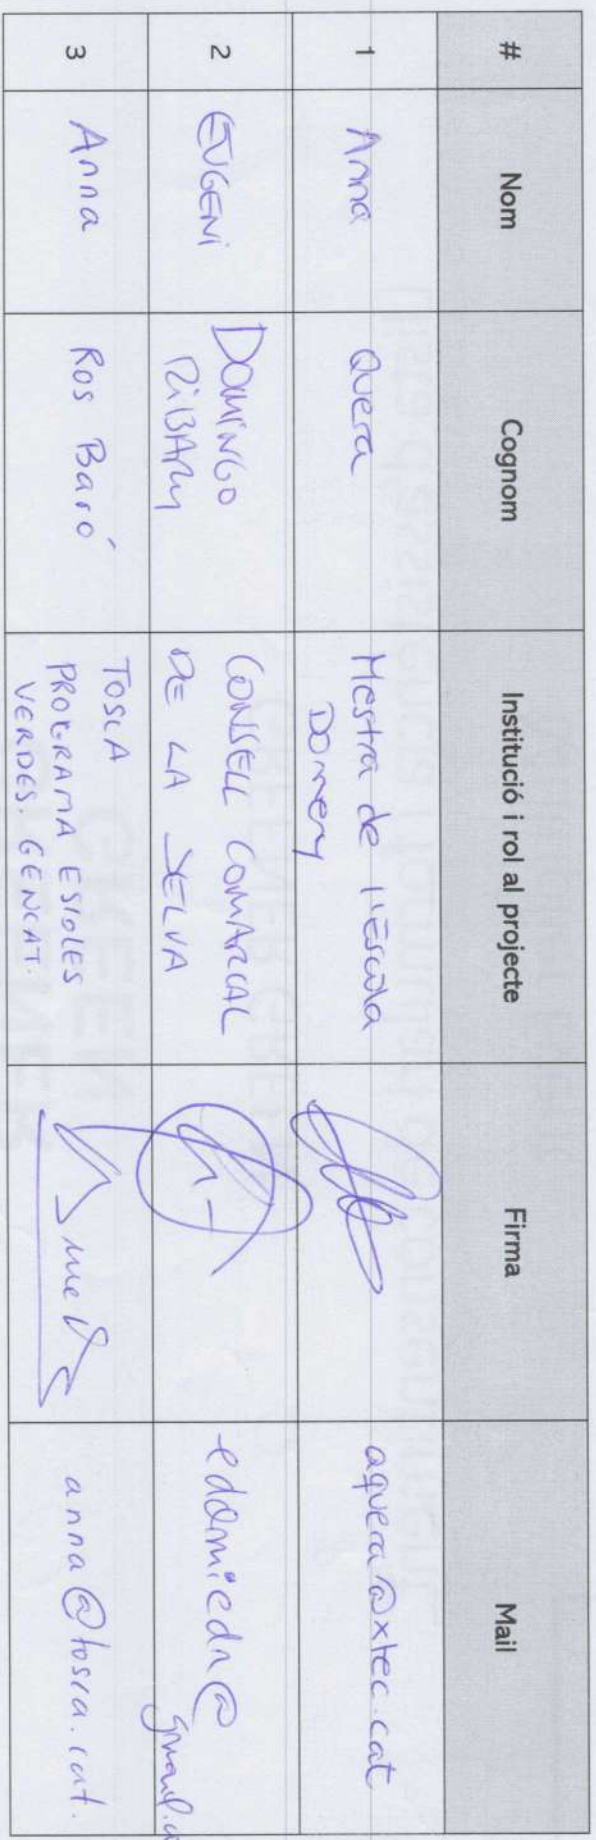 # Nom Cognom Institució i rol al projecte Firma Mail
1 Anna Quera Mestra de l'Escola
Domeny
aquera@xtec.cat
2 EUGENI DOMINGO
CONSELL COMARCAL
DE LA SELVA
3 Anna Ros Baró TOSCA
PROGRAMA ESCOLES
VERDES. GENCAT.
anna@tosca.cat.